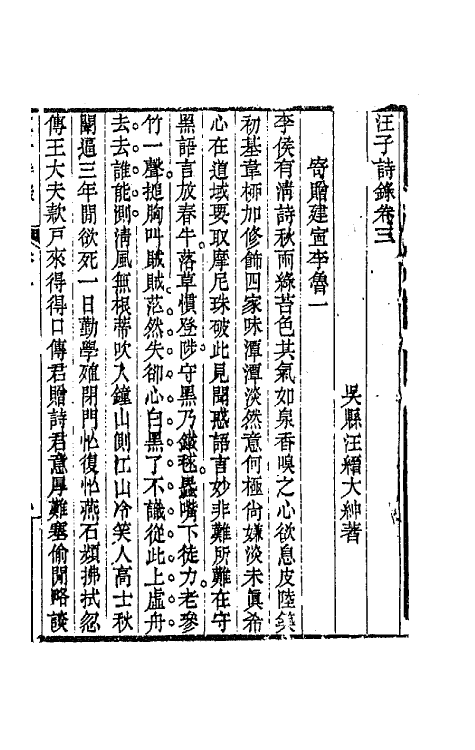 汪子詩錄卷三
吳縣汪縉大紳著
寄贈建寧李魯一
李侯有淸詩秋雨綠苔色其氣如泉香嗅之心欲息皮陸築
初基韋柳加修飾四家味潭潭淡然意何極尙嫌淡未眞希
心在道域要取摩尼珠破此見聞惑語言妙非難所難在守
黑語言放春牛落草慣登陟守黑乃鐵毬蟁嘴下徒力老參
竹一聲搥胸叫賊賊茫然失卻心白黑了不識從此上虛舟
去去誰能測淸風無根蔕吹人鐘山側江山冷笑人高士秋
闈逼三年閒欲死一日勤學殖閉門怕復怕燕石頻拂拭忽
傳王大夫款戸來得得口傳君贈詩君意厚難塞偷閒略談